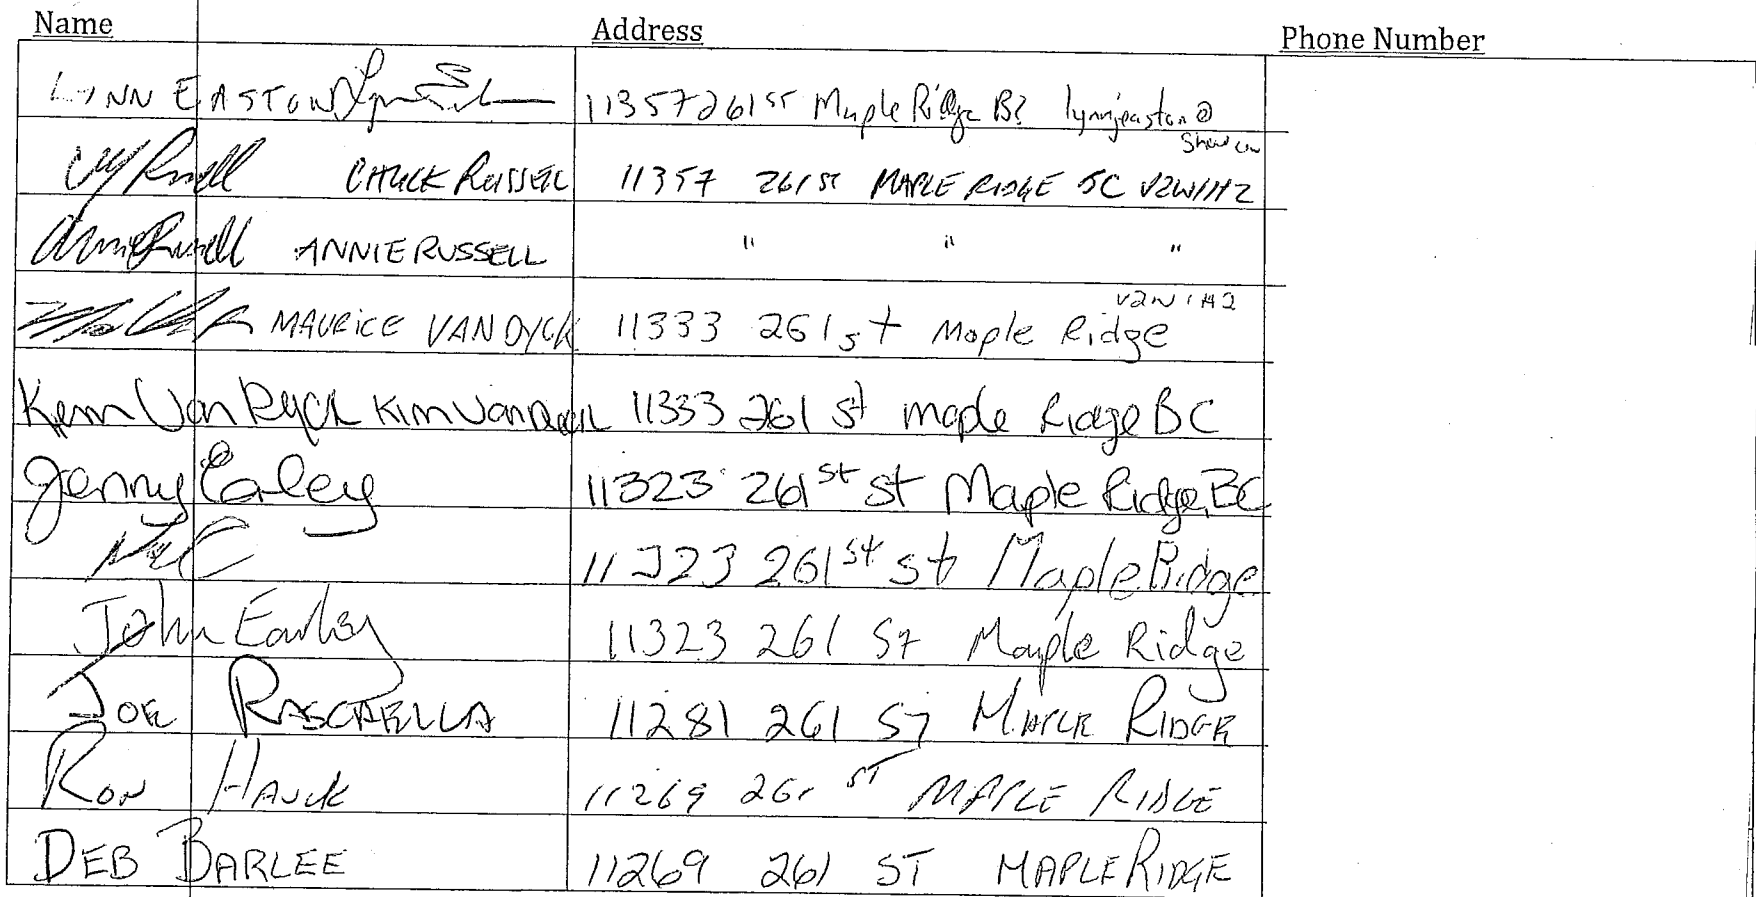 Name Address Phone Number
LYNN EASTON 11357 261 ST Maple Ridge BC lynnjeaston@
Shaw.ca
CHUCK RUSSELL 11357 261 ST MAPLE RIDGE BC V2W1H2
Annie Russell ANNIE RUSSELL " " "
V2W1H2
MAURICE VAN DYCK 11333 261 st Maple Ridge
Van Dyck Kim Van Dyck 11333 261 st maple Ridge BC
Jenny Earley 11323 261st st Maple Ridge, BC
11323 261st st Maple Ridge
John Earley 11323 261 St Maple Ridge
JOE RASCARELLA 11281 261 ST MAPLE RIDGE
RON HAUCK 11269 261 ST MAPLE RIDGE
DEB BARLEE 11269 261 ST MAPLE RIDGE